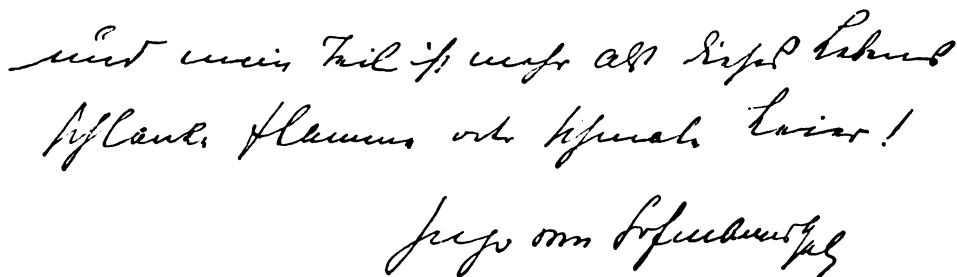 und mein Teil ist mehr als dieses Lebens
schlanke Flamme oder schmale Leier!
Hugo von Hofmannsthal